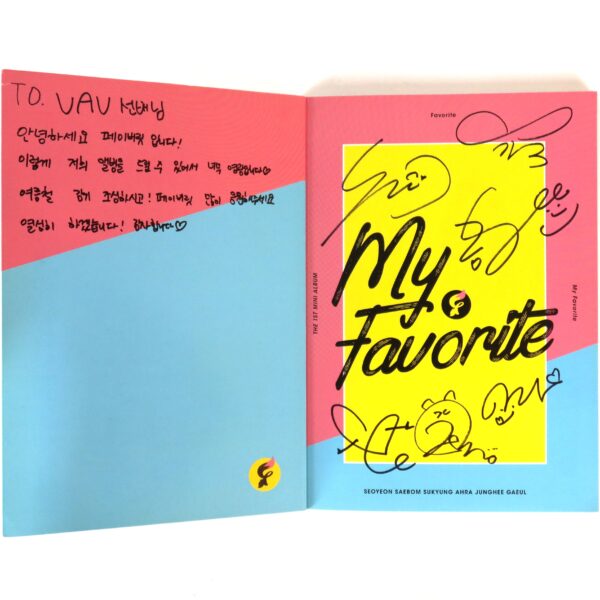 TO. VAV 선배님
안녕하세요 페이버릿 입니다!
이렇게 저희 앨범을 드릴 수 있어서 너무 영광입니다♡
여름철 감기 조심하시고! 페이버릿 많이 응원해주세요
열심히 하겠습니다! 감사합니다♡
Favorite
My
Favorite
THE 1ST MINI ALBUM
My Favorite
SEOYEON SAEBOM SUKYUNG AHRA JUNGHEE GAEUL